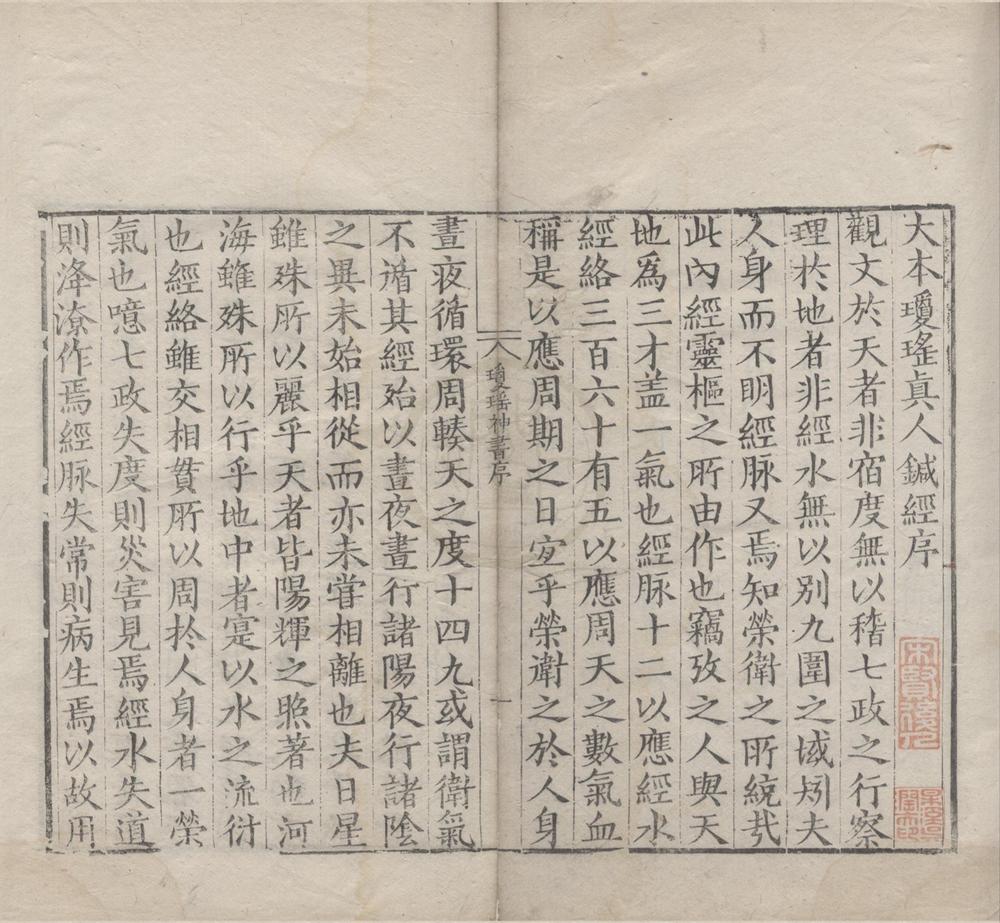 大本瓊瑤眞人鍼經序
觀文於天者非宿度無以稽七政之行察
理於地者非經水無以別九圍之域矧夫
人身而不明經脉又焉知榮衛之所統㢤
此內經靈樞之所由作也竊攷之人與天
地爲三才盖一氣也經脉十二以應經水
經絡三百六十有五以應周天之數氣血
稱是以應周期之日宐乎榮衛之於人身
瓊瑶神書序
一
晝夜循環周輳天之度十四九或謂衛氣
不遁其經殆以晝夜晝行諸陽夜行諸隂
之異未始相從而亦未甞相離也夫日星
雖殊所以麗乎天者皆陽輝之照著也河
海雖殊所以行乎地中者寔以水之流衍
也經絡雖交相貫所以周扵人身者一榮
氣也噫七政失度則災害見焉經水失道
則洚潦作焉經脉失常則病生焉以故用